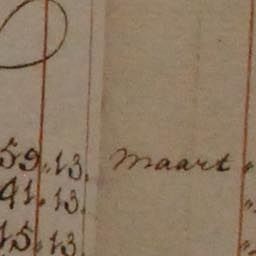 59.13. Maart "
41.13. "
15.13. "